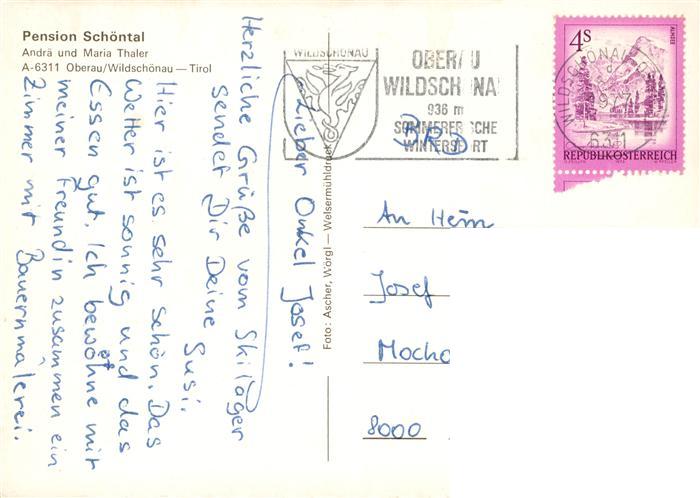 Pension Schöntal
Andrä und Maria Thaler
A-6311 Oberau/Wildschönau — Tirol
WILDSCHÖNAU
OBERAU
WILDSCHÖNA
936 m
SOMMERERISCHE
WINTERSPORT
BRD
4S
ALMSEE
REPUBLIK ÖSTERREICH
WILDSCHÖNAU
6311
Lieber Onkel Josef!
Herzliche Grüße vom Skilager
sendet Dir Deine Susi.
Hier ist es sehr schön. Das
Wetter ist sonnig und das
Essen gut. Ich bewohne mit
meiner Freundin zusammen ein
Zimmer mit Bauernmalerei.
Foto: Ascher, Wörgl — Welsermühldruck
An Herrn
Josef
Mocho
8000